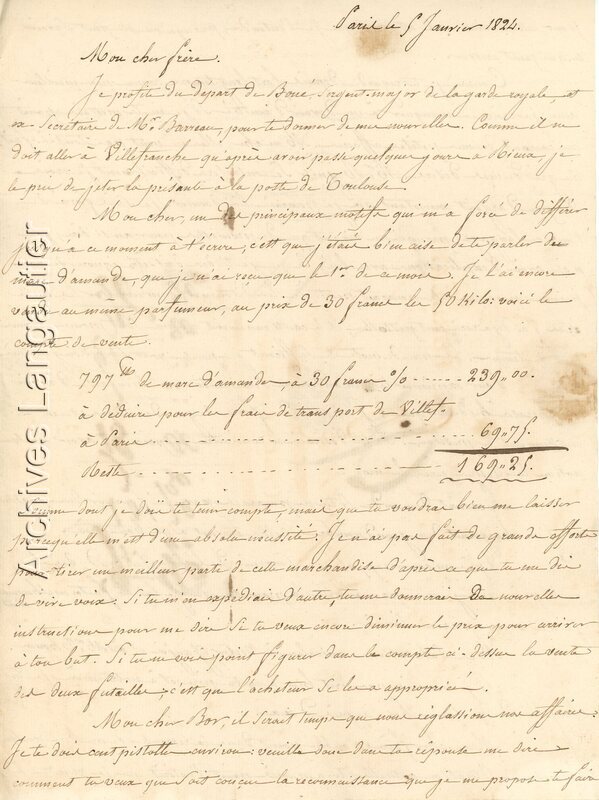 Paris le 5 Janvier 1824.
Mon cher frère.
Je profite du départ de Boué, Sergent-major de la garde royale, et
ex-Secrétaire de Mr. Barreau, pour te donner de mes nouvelles. Comme il ne
doit aller à Villefranche qu'après avoir passé quelques jours à Rieux, je
le prie de jeter la présante à la poste de Toulouse.
Mon cher, un des principaux motifs qui m'a forcé de différer
jusqu'à ce moment à t'écrire, c'est que j'étais bien aise de te parler du
marc d'amande, que je n'ai reçu que le 1er. de ce mois. Je l'ai encore
vendu au même parfumeur, au prix de 30 francs les 50 Kilo: voici le
compte de vente.
797 ℔ de marc d'amandes, à 30 francs % ------ 239,,00.
à déduire pour les frais de transport de Villef.
à Paris ------------ 69,,75.
Reste ------------ 169,,25.
Somme dont je dois te tenir compte, mais que tu voudras bien me laisser
parcequ'elle m'est d'une absolue nécessité. Je n'ai pas fait de grands efforts
pour tirer un meilleur parti de cette marchandise d'après ce que tu me dis
de vive voix. Si tu m'en expédiais d'autre, tu me donnerais de nouvelles
instructions pour me dire si tu veux encore diminuer le prix pour arriver
à ton but. Si tu ne vois point figurer dans le compte ci-dessus la vente
des deux futailles, c'est que l'acheteur se les a appropriés.
Mon cher Bor, il serait temps que nous réglassions nos affaires:
Je te dois cent pistolles environ: veuille donc dans ta réponse me dire
comment tu veux que soit conçue la reconnaissance que je me propose te faire
Archives Langautier